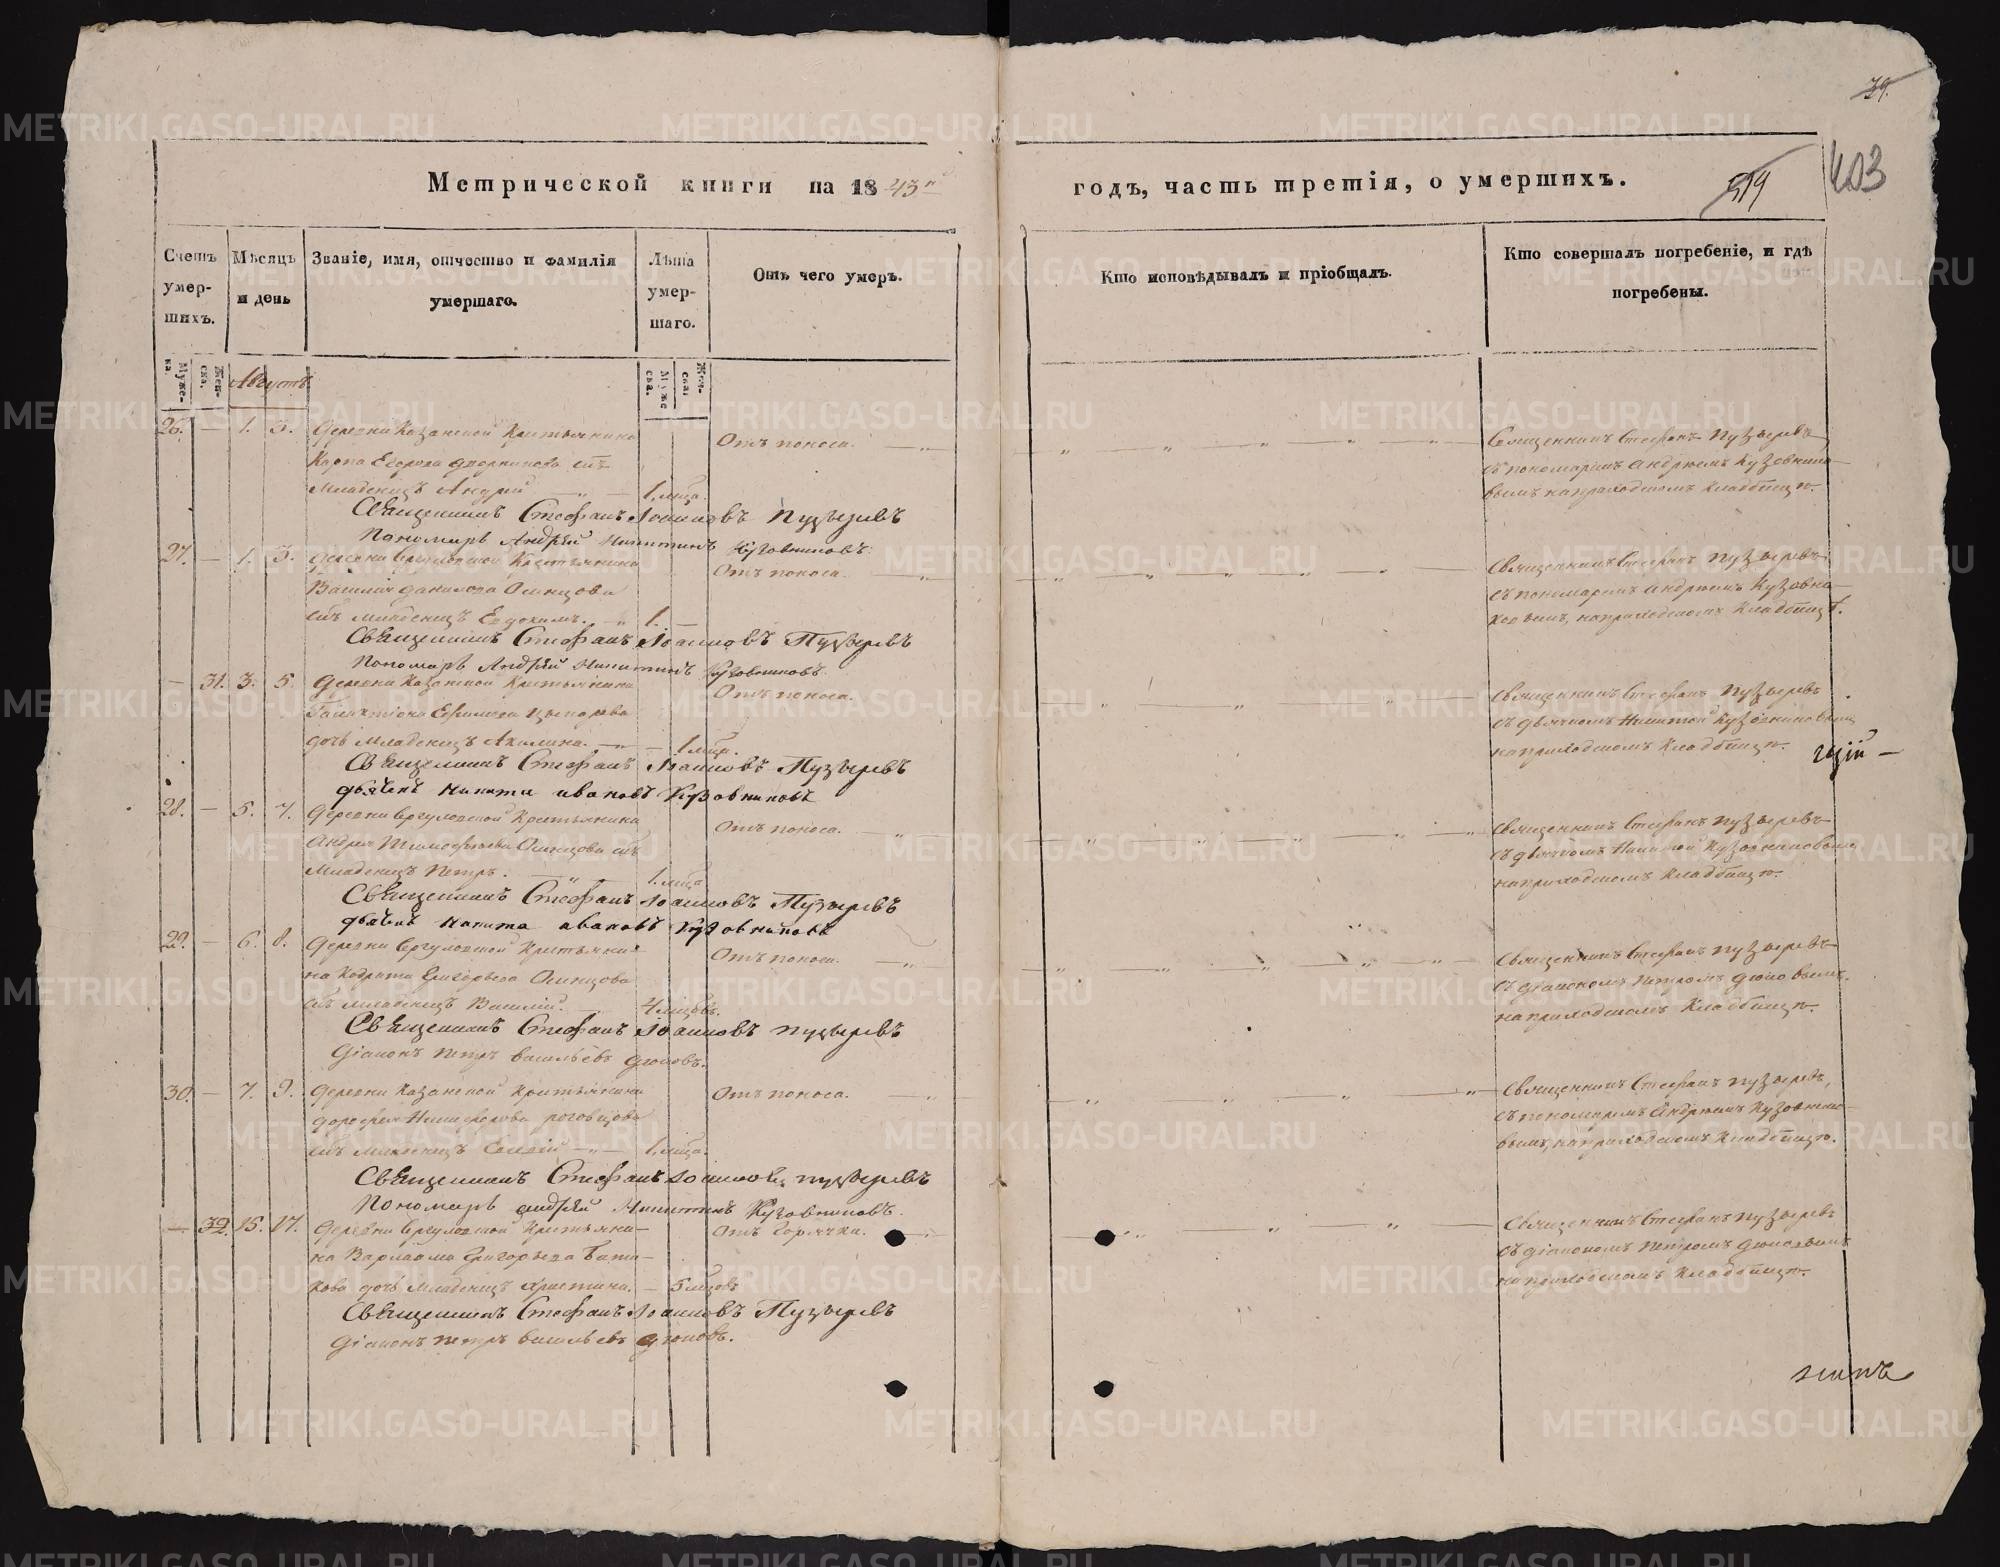 79.
Метрической книги на 1843 годъ, часть третія, о умершихъ.
519
403
Счетъ умер-шихъ.
Мѣсяцъ и день
Званіе, имя, отчество и фамилія умершаго.
Лѣта умер-шаго.
Отъ чего умеръ.
Кто исповѣдывалъ и пріобщалъ.
Кто совершалъ погребеніе, и гдѣ погребены.
Муже-ска.
Жен-ска.
Августъ
Муже ска.
Жен-ска.
26. — 1. 3. Деревни Казанской Крестьянина Отъ поноса. Священникъ Стефанъ Пузыревъ
Карпа Егорова сынъ съ пономаремъ Андреемъ Кузовнико-
Младенецъ Андрей 1. мца. вымъ на приходскомъ кладбищѣ.
Священникъ Стефанъ Іоанновъ Пузыревъ
Пономарь Андрей Никитинъ Кузовниковъ
27. — 1. 3. Деревни Крестьянина Отъ поноса. Священникъ Стефанъ Пузыревъ
Василія Данилова Осинцова съ пономаремъ Андреемъ Кузовни-
сынъ младенецъ Евдокимъ. 1. — ковымъ, на приходскомъ кладбищѣ.
Священникъ Стефанъ Іоанновъ Пузыревъ
Пономарь Андрей Никитинъ Кузовниковъ
— 31. 3. 5. Деревни Казанской Крестьянина Отъ поноса. Священникъ Стефанъ Пузыревъ
Ефимова съ дьячкомъ Никитой Кузовниковымъ
дочь младенецъ Акилина. — 1 мца. на приходскомъ кладбищѣ.
Священникъ Стефанъ Іоанновъ Пузыревъ
дьячекъ Никита Ивановъ Кузовниковъ
28. — 5. 7. Деревни Крестьянина Отъ поноса. Священникъ Стефанъ Пузыревъ
Андрея Тимофеева Осинцова сынъ съ дьячкомъ Никитой Кузовниковымъ
Младенецъ Петръ. 1. мца на приходскомъ кладбищѣ.
Священникъ Стефанъ Іоанновъ Пузыревъ
дьячекъ Никита Ивановъ Кузовниковъ
29. — 6. 8. Деревни Крестьяни- Отъ поноса. Священникъ Стефанъ Пузыревъ
на Кодрата Григорьева Осинцова съ діакономъ Петромъ Дюковымъ.
сынъ младенецъ Василій. 4 мцовъ. на приходскомъ кладбищѣ.
Священникъ Стефанъ Іоанновъ Пузыревъ
Діаконъ Петръ Васильевъ Дюковъ.
30. — 7. 9. Деревни Казанской Крестьянина Отъ поноса. Священникъ Стефанъ Пузыревъ,
Дорофея Никифорова съ пономаремъ Андреемъ Кузовнико-
сынъ младенецъ 1. мца. вымъ, на приходскомъ кладбищѣ.
Священникъ Стефанъ Іоанновъ Пузыревъ
Пономарь Андрей Никитинъ Кузовниковъ.
— 32. 15. 17. Деревни Крестьяни- Отъ горячки. Священникъ Стефанъ Пузыревъ
на Варлаама Григорьева съ діакономъ Петромъ Дюковымъ
дочь младенецъ Христина. — 5 мцовъ на приходскомъ кладбищѣ.
Священникъ Стефанъ Іоанновъ Пузыревъ
Діаконъ Петръ Васильевъ Дюковъ.
METRIKI.GASO-URAL.RU